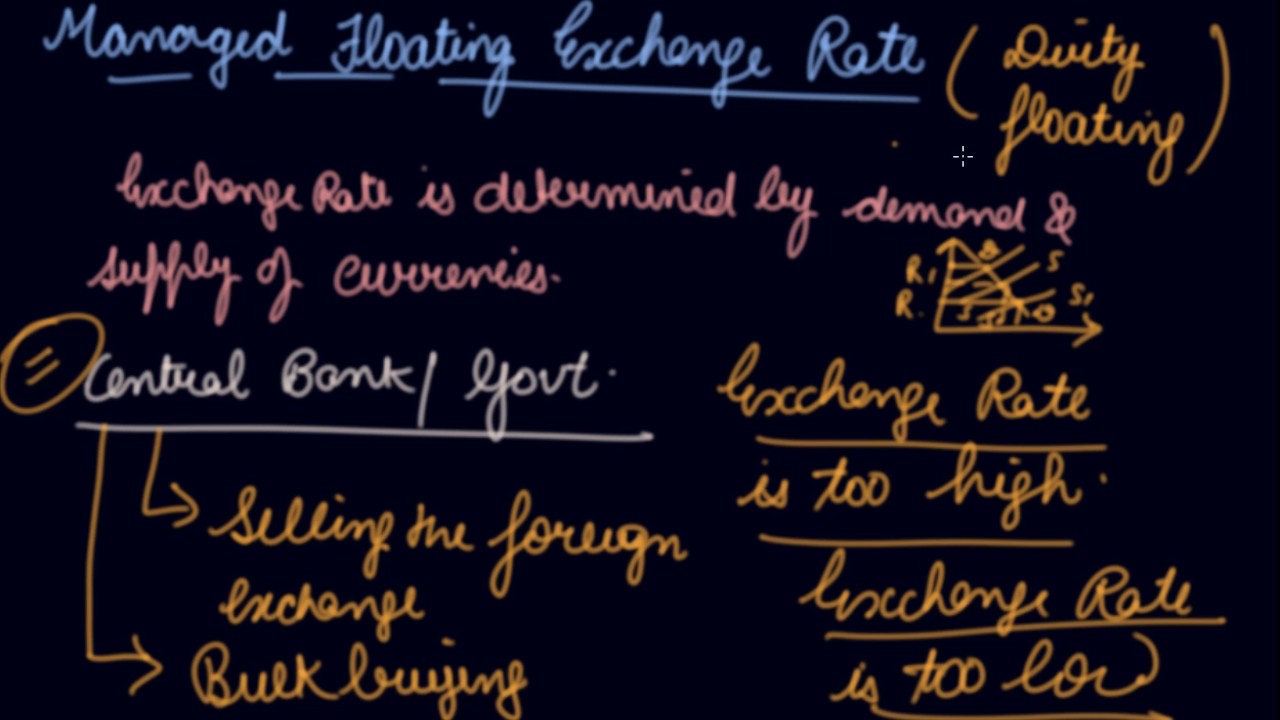 Managed Floating Exchange Rate (Dirty
floating)
Exchange Rate is determined by demand &
supply of currencies.
R1 S
R. S1
Central Bank/Govt.
Exchange Rate
is too high.
Selling the foreign
exchange
Exchange Rate
is too low
Bulk buying